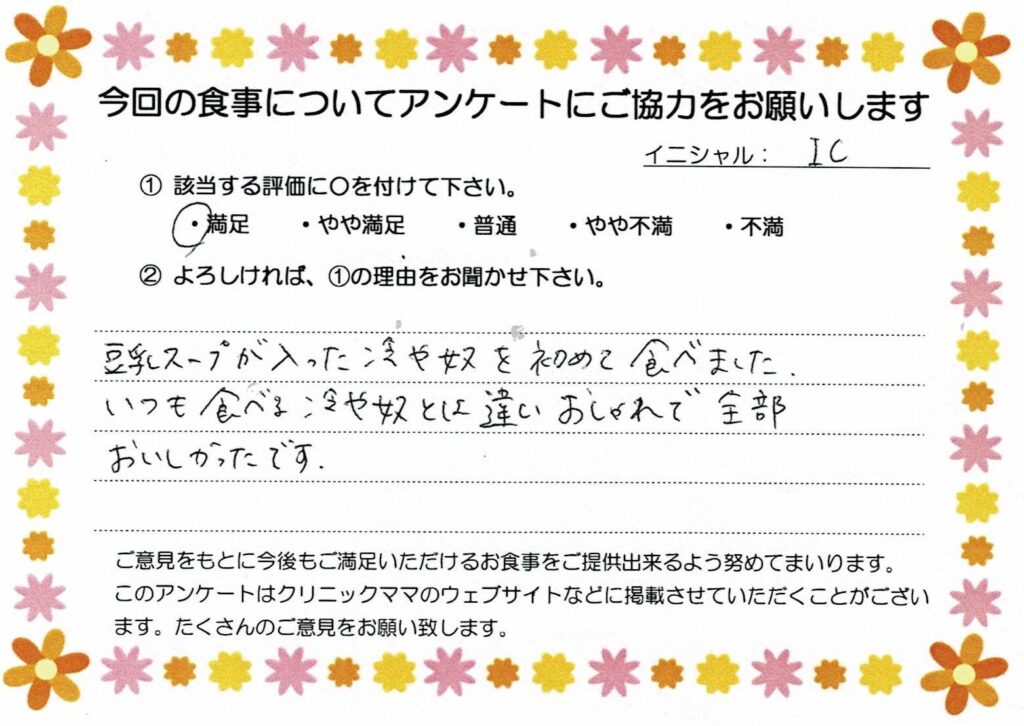 今回の食事についてアンケートにご協力をお願いします
イニシャル： IC
① 該当する評価に〇を付けて下さい。
・満足 ・やや満足 ・普通 ・やや不満 ・不満
② よろしければ、①の理由をお聞かせ下さい。
豆乳スープが入った冷や奴を初めて食べました.
いつも食べる冷や奴とは違いおしゃれで全部
おいしかったです.
ご意見をもとに今後もご満足いただけるお食事をご提供出来るよう努めてまいります。
このアンケートはクリニックママのウェブサイトなどに掲載させていただくことがござい
ます。たくさんのご意見をお願い致します。